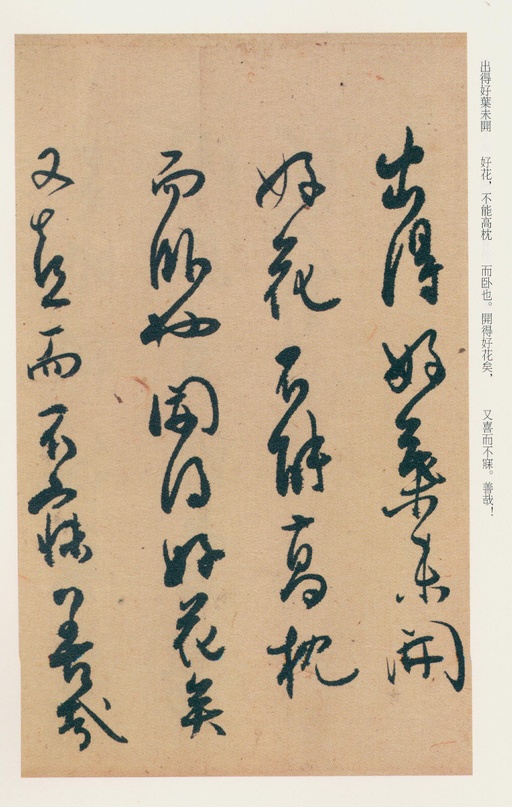 出得好葉未開
好花，不能高枕
而卧也。開得好花矣，
又喜而不寐。善哉！
出得好葉未開
好花不能高枕
而卧也開得好花矣
又喜而不寐善哉